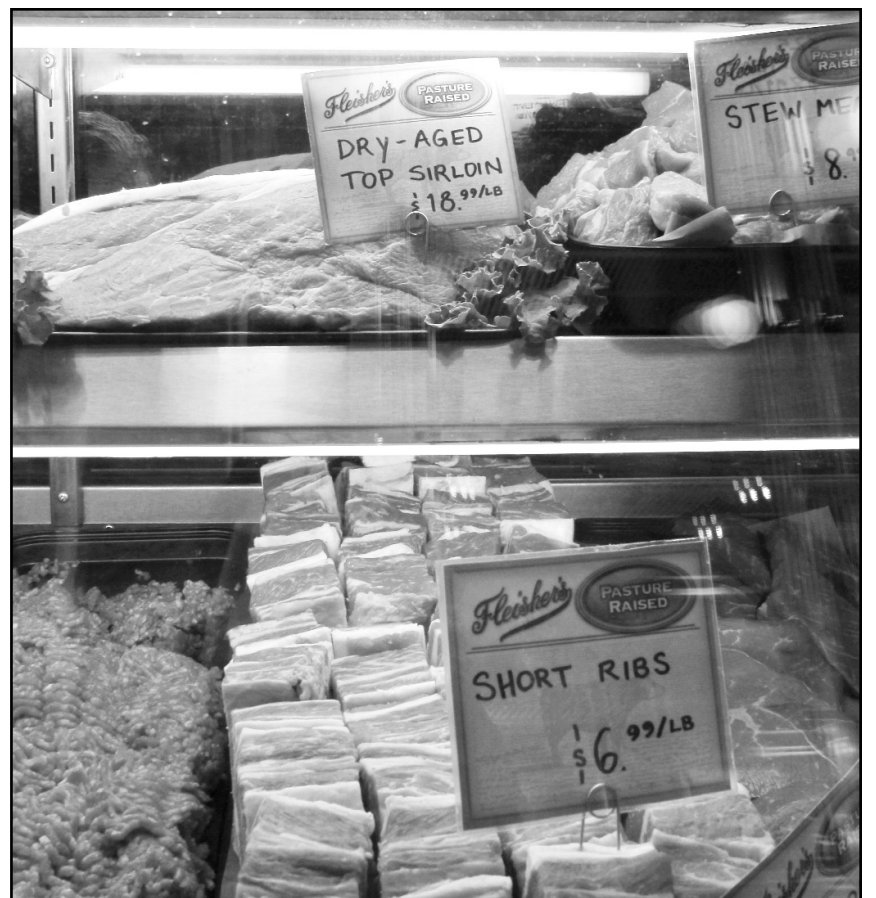 Fleisher's
PASTURE
RAISED
DRY-AGED
TOP SIRLOIN
$18.99/LB
Fleisher's
PASTURE
RAISED
STEW
$8.
Fleisher's
PASTURE
RAISED
SHORT RIBS
$6.99/LB